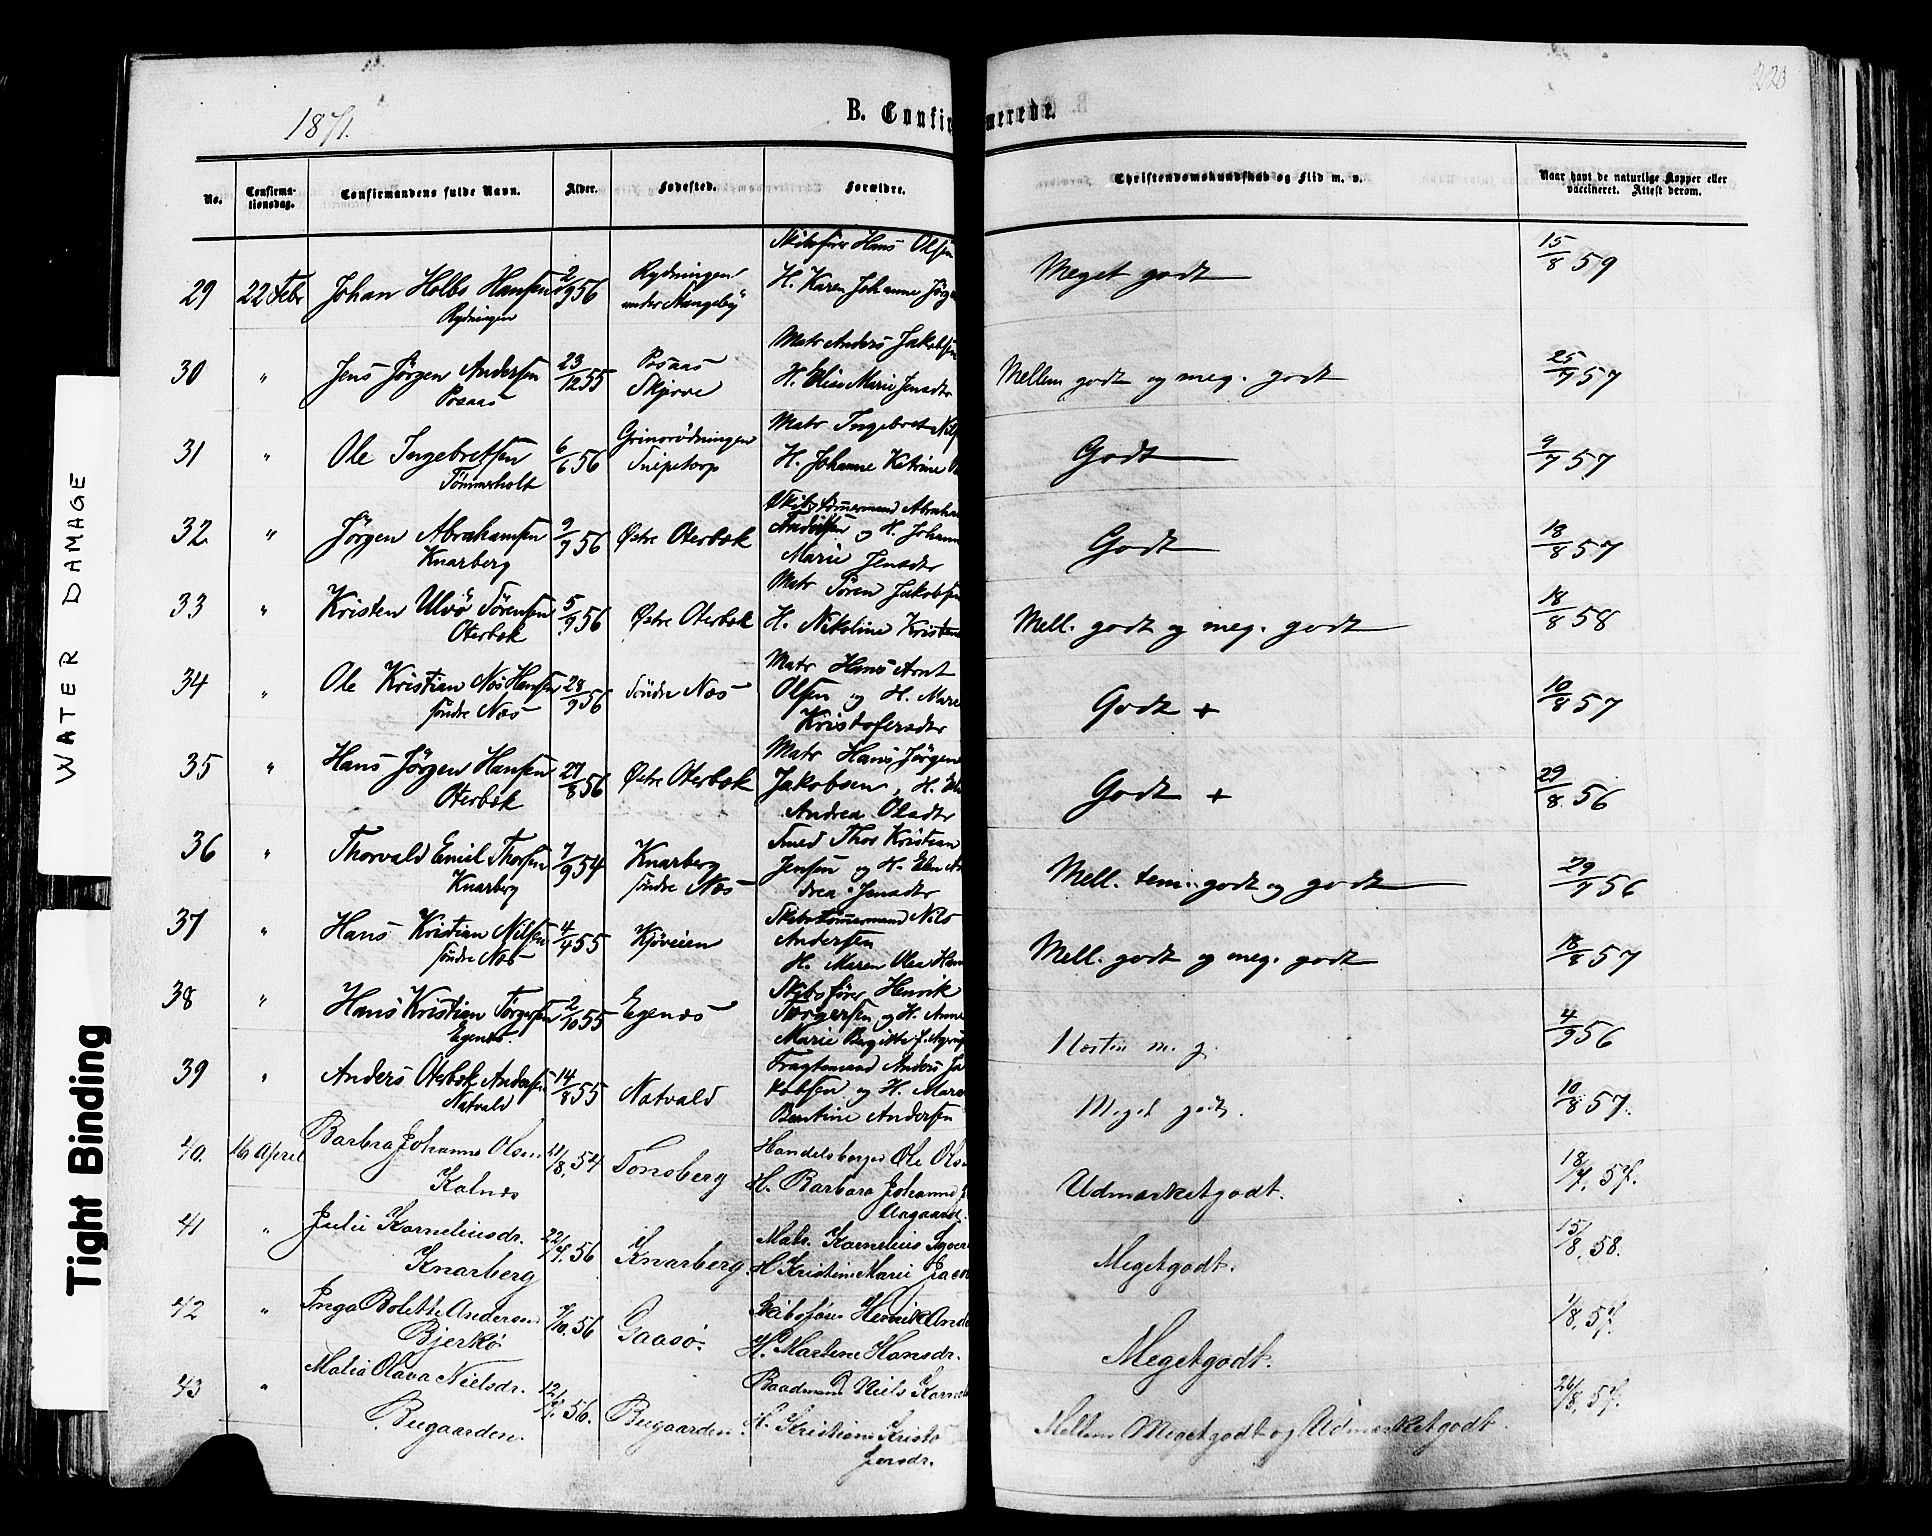 223
1871.
B. Confirmerede.
No.
Confirmationsdag.
Confirmandens fulde Navn.
Alder.
Fødested.
Forældre.
Christendomskundskab og Flid m. v.
Naar havt de naturlige Kopper eller vaccineret. Attest derom.
29 22 Febr Johan Holbs Hansen 2/9 56 Rydningen under Stangeby
Rydningen
Skibsfører Hans Olsen
H. Karen Johanne Jörg
Meget godt 15/8 59
30 " Jens Jörgen Andersen 23/12 55 Posaas Skjerve
Posaas
Matr Anders Jakobsen
H. Elise Marie Jensdtr
Mellem godt og meg. godt 25/7 57
31 " Ole Ingebretsen 6/6 56 Grinorödningen Snipetorp
Tömmerholt
Matr Ingebret Nils
H. Johanne Katrine
Godt 9/7 57
32 " Jörgen Abrahamsen 9/7 56 Østre Oterbæk
Knarberg
Skibstömmermand Abraham
Andersen og H. Johanne
Marie Jensdtr
Godt 18/8 57
33 " Kristen Ulvö Sörensen 5/9 56 Østre Oterbæk
Oterbæk
Matr Sören Jakobsen
H. Nikoline Kristens
Mell. godt og meg. godt 18/8 58
34 " Ole Kristian Næs Hansen 28/9 56 Söndre Næs
söndre Næs
Matr Hans Arnt
Olsen og H. Maren
Kristofersdtr
Godt + 10/8 57
35 " Hans Jörgen Hansen 27/8 56 Østre Oterbæk
Oterbæk
Matr Hans Jörgen
Jakobsen, H.
Andrea Olsdtr
Godt + 29/8. 56
36 " Thorvald Emil Thorsen 7/9 54 Knarberg söndre Næs
Knarberg
Smed Thor Kristian
Jensen og H. Elen An
drea Jensdtr
Mell. tem. godt og godt 29/7 56
37 " Hans Kristian Nilsen 4/4 55 Kjöveien
söndre Næs
Skibstömmermand Nils
Andersen
H. Maren Olea Han
Mell. godt og meg. godt 18/8 57
38 " Hans Kristian Torgersen 2/10 55 Egenæs
Egenæs.
Skibsfører Henrik
Torgersen og H. Anne
Marie Bergitte f.
Næsten m. g. 4/9 56
39 " Anders Oterbæk Andersen 14/8 55 Natvald
Natvald
Fragtemand Anders Ja
kobsen og H. Maren
Berntine Andersen
Meget godt. 10/8 57.
40. 16 April Barbra Johanne Olsen 21/8. 54 Tønsberg
Kalnæs
Handelsborger Ole Olsen
H. Barbara Johanne
Aagaard.
Udmærketgodt. 18/7. 57.
41 " Julie Kornelius dr. 22/7. 56 Knarberg.
Knarberg
Matr. Kornelius
H. Kristine Marie Jacob
Megetgodt. 15/8. 58.
42 " Inga Bolette Andersen /10. 56 Gaasø.
Bjerkø
Skibsfører Henrik Ande
H. Marlene Hansdr.
Megetgodt. /8. 57.
43 " Malia Olava Nielsdr. 12/7. 56. Bugaarden.
Bugaarden.
Baadmand Niels Korne
H. Kristiane Kristo
Jensdr.
Mellem Megetgodt og Udmærketgodt. 26/8. 57.
WATER DAMAGE
Tight Binding